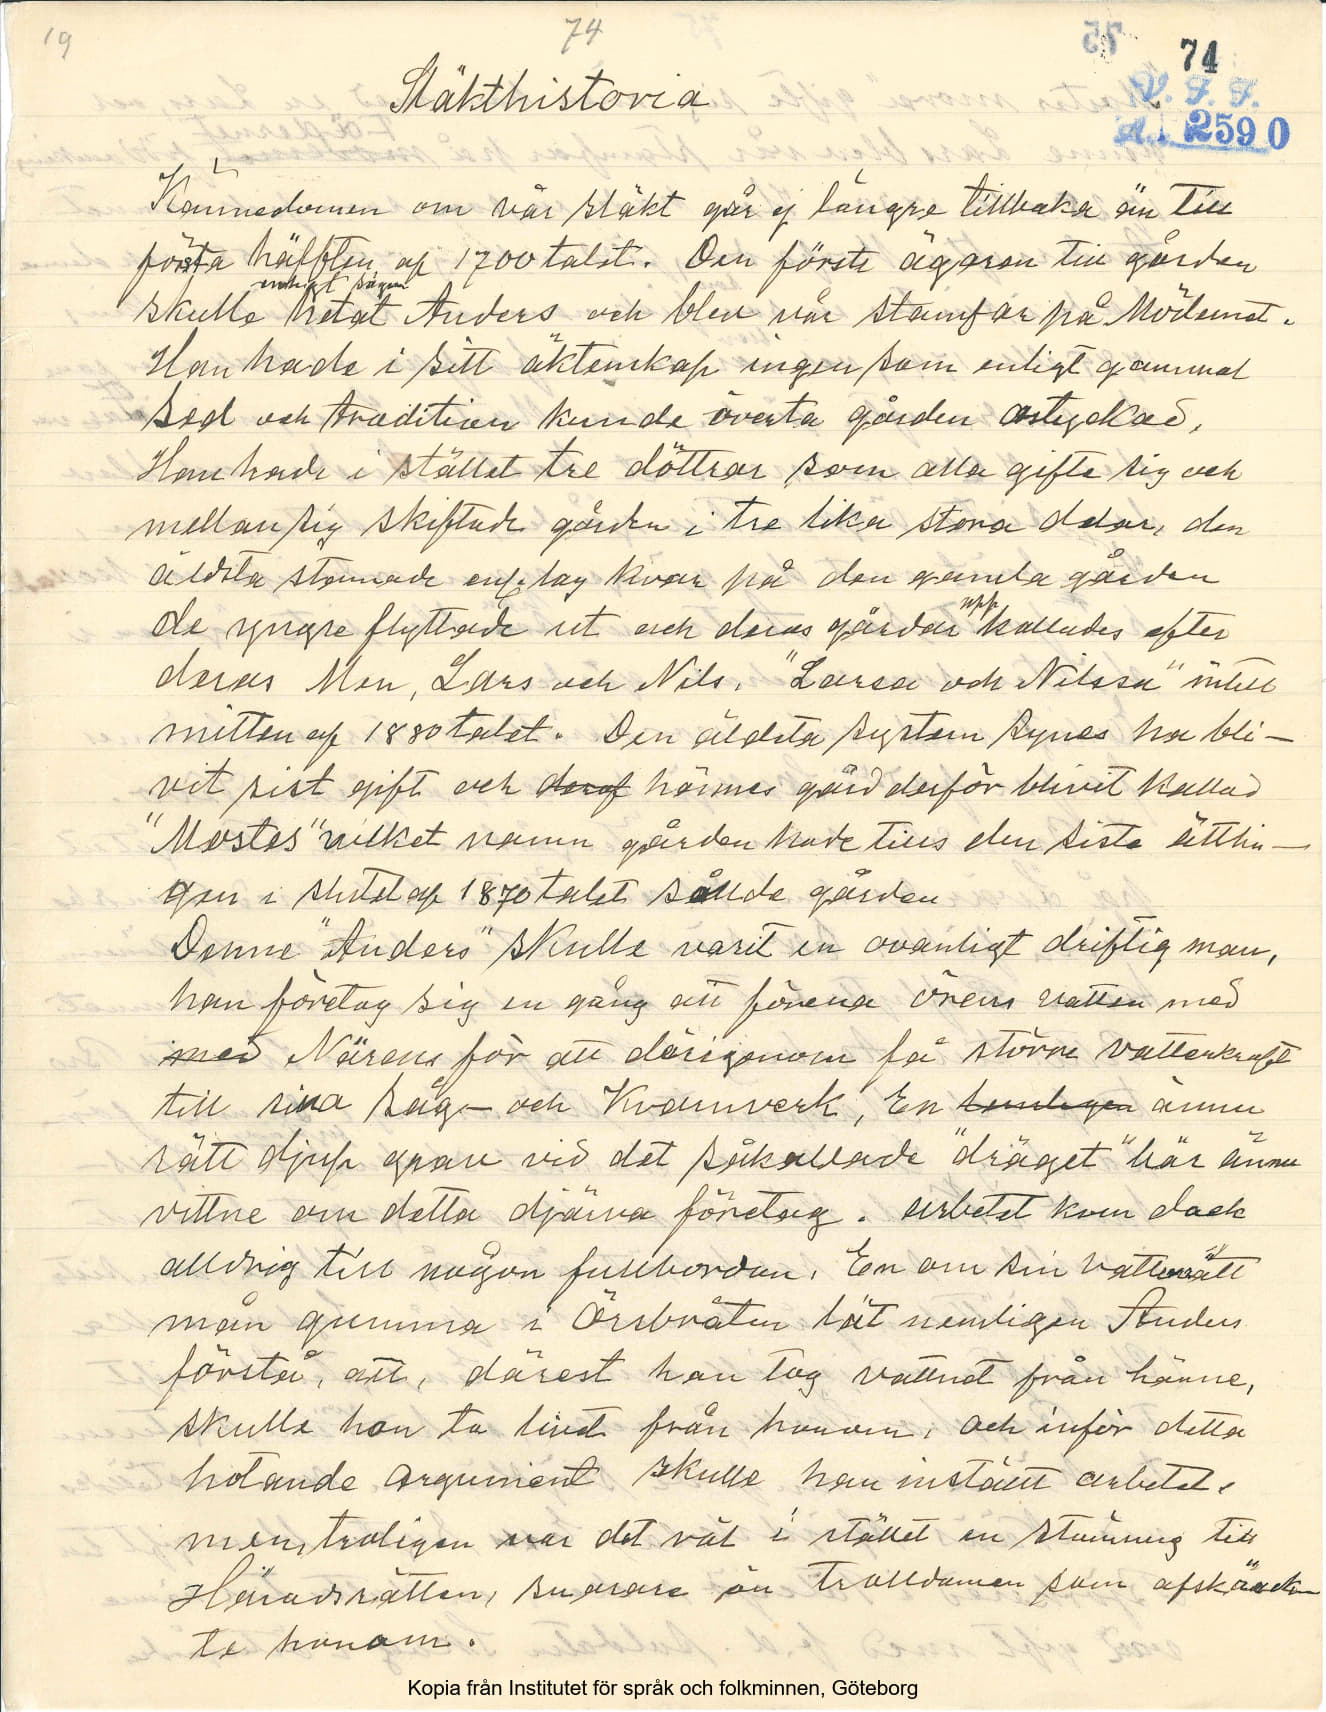 19
74
75
74
V. F. F.
A. 2590
Släkthistoria
Kännedomen om vår släkt går ej längre tillbaka än till
första häfften af 1700talet. Den förste ägaren till gården
enligt sägen
skulle hetat Anders och blev vår stamfar på Mödernet.
Han hade i sitt äktenskap ingen som enligt gammal
sed och tradition kunde överta gården ostyckad,
Han hade i stället tre döttrar som alla gifte sig och
mellan sig skiftade gården i tre lika stora delar, den
äldsta stannade enl. lag kvar på den gamla gården
upp
de yngre flyttade ut och deras gårdar kallades efter
deras Men, Lars och Nils, "Larsa och Nilssa" intill
mitten af 1880talet. Den äldsta systern synes ha bli-
vit sist gift och deraf hännes gård derför blivit kallad
"Mostes" vilket namn gården hade tills den siste ättlin-
gen i slutet af 1870talet sållde gården
Denne "Anders" skulle varit en ovanligt driftig man,
han företog sig en gång att förena örens vatten med
med Närens för att därigenom få större vattenkraft
till sina såg- och Kvarnverk, En ännu
rätt djup grav vid det såkallade "dräget" bär ännu
vittne om detta djärva företag. arbetet kom dock
alldrig till någon fullbordan, En om sin vattenrätt
mån gumma i Örsbråten lät nemligen Anders
förstå, att, därest han tog vattnet från hänne,
skulle hon ta livet från honom, och inför detta
hotande argument skulle han inställt arbetet,
men, troligen var det väl i stället en stämning till
Häradsrätten, snarare än trolldomen som afskräck
te honom.
Kopia från Institutet för språk och folkminnen, Göteborg